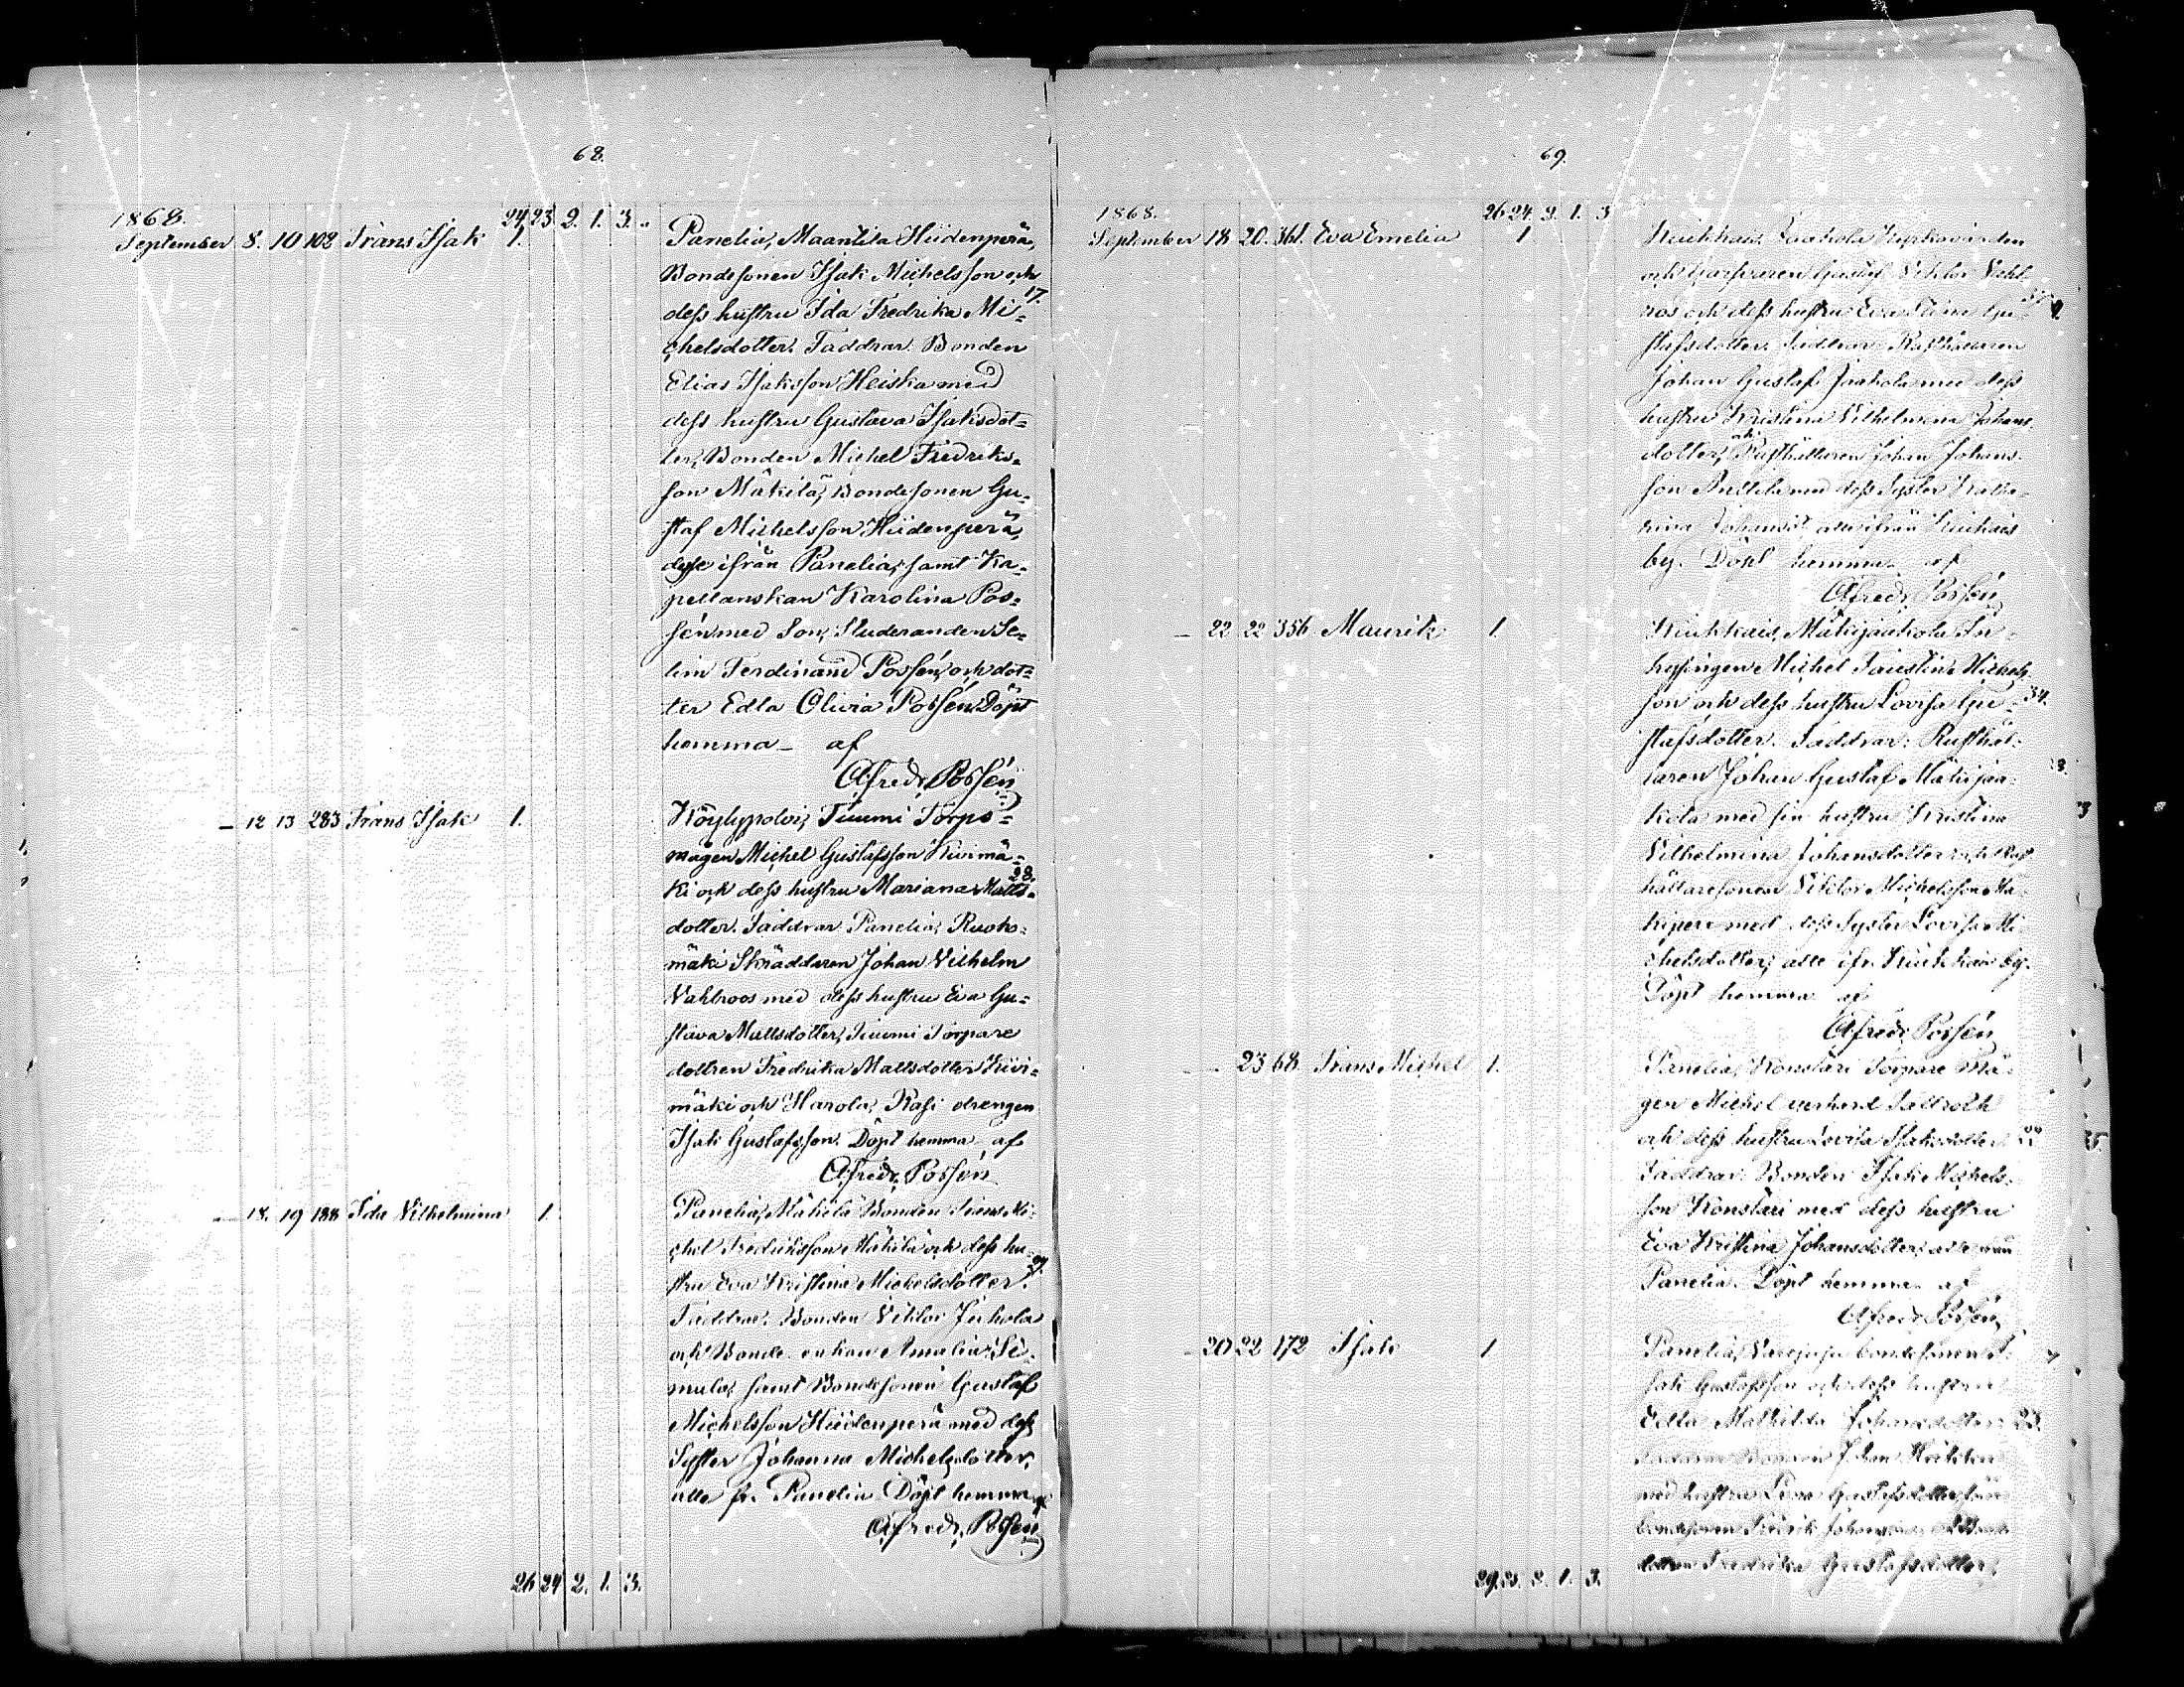 68.
1868. 24 23 2. 1. 3.
September 8. 10 102 Frans Isak 1. Panelia, Maantila Hiidenperä,
Bondesonen Isak Michelsson och
dess hustru Ida Fredrika Mi= 17.
chelsdotter. Faddrar. Bonden
Elias Isaksson Heiska med
dess hustru Gustava Isaksdot=
ter, Bonden Michel Fredriks=
son Mäkilä, Bondesonen Gu=
staf Michelsson Hiidenperä,
desse ifrån Panelia, samt Ka=
pellanskan Karolina Pos=
sén med Son, Studeranden Se=
lim Ferdinand Possén, och dot=
ter Edla Olivia Possén. Döpt
hemma af
Alfred Possén
12 13 283 Frans Isak 1. Köylypolvi, Tuumi Torps=
mågen Michel Gustafsson Kivimä=
ki och dess hustru Mariana Matts= 28.
dotter. Faddrar. Panelia, Ruoho=
mäki Skräddaren Johan Vilhelm
Vahlroos med dess hustru Eva Gu=
stava Mattsdotter, Tuumi Torpare
dottren Fredrika Mattsdotter Kivi=
mäki och Harola, Rasi drengen
Isak Gustafsson. Döpt hemma af
Alfred Possén
18. 19 188 Ida Vilhelmina 1. Panelia, Mäkilä Bonden Mi=
chel Fredriksson Mäkilä och dess hu=
stru Eva Kristina Michelsdotter.
Faddrar. Bonden Viktor
och Amalia Si=
mula, samt Bondesonen Gustaf
Michelsson Hiidenperä med dess
Syster Johanna Michelsdotter,
alla fr. Panelia. Döpt hemma af
Alfred Possén
26 24 2. 1. 3.
69.
1868. 26 24. 2. 1. 3
September 18 20. 361. Eva Emelia 1 Kiukkais,
och Garfvaren Gustaf Viktor Vahl=
roos och dess hustru Eva Stina Gu=
stafsdotter. Faddrar: Rusthållaren
Johan Gustaf Jaakola med dess
hustru Kristina Vilhelmina Johans
dotter, och Rusthållaren Johan Johans=
son med dess Syster Katha=
rina Johansd. alla ifrån Kiukais
by. Döpt hemma af
Alfred Possén
22 22 356 Maurits 1. Kiukkais, Mäkijaakola In=
hysingen Michel Faustin Michels
son och dess hustru Lovisa Gu= 34.
stafsdotter. Faddrar: Rusthål=
laren Johan Gustaf Mäkijaa=
kola med sin hustru Kristina
Vilhelmina Johansdotter och Rust
hållaresonen Viktor Michelsson Mä=
kiperi med dess Syster Lovisa Mi=
chelsdotter, alla ifr. Kiukkais by.
Döpt hemma af
Alfred Possén
23 68. Frans Michel 1. Panelia, Konstari Torpare Må=
gen Michel Gerhard Sallroth
och dess hustru Lovisa Isaksdotter. 22
Faddrar: Bonden Isak Michels=
son Konstari med dess hustru
Eva Kristina Johansdotter, alla från
Panelia. Döpt hemma af
Alfred Possén
20 22 172 Isak 1 Panelia, bondesonen I=
sak Gustafsson och dess hustru
Edla Mathilda Johansdotter. 23.
Faddrar Bonden Johan
med hustru Gustafsdotter,
bondesonen Fredrik Johansson
Fredrika Gustafsdotter,
29. 25. 2. 1. 3.